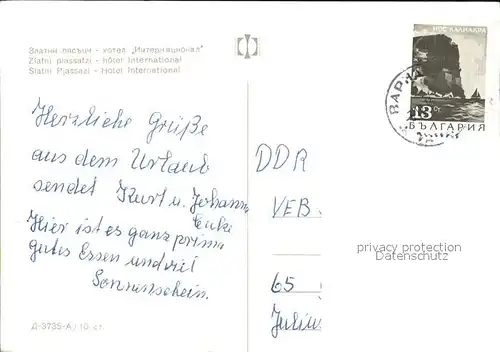 Златни пясъци - хотел „Интернационал"
Zlatni piassatzi - hôtel International
Slatni Pjassazi - Hotel International
НОС КАЛИАКРА
13 ст
БЪЛГАРИЯ
ВАРНА
Herzliche Grüße
aus dem Urlaub
sendet Kurt u. Johanna
Hier ist es ganz prima
gutes Essen und viel
Sonnenschein.
Д-3735-А / 10 ст.
DDR
VEB
privacy protection
Datenschutz
65